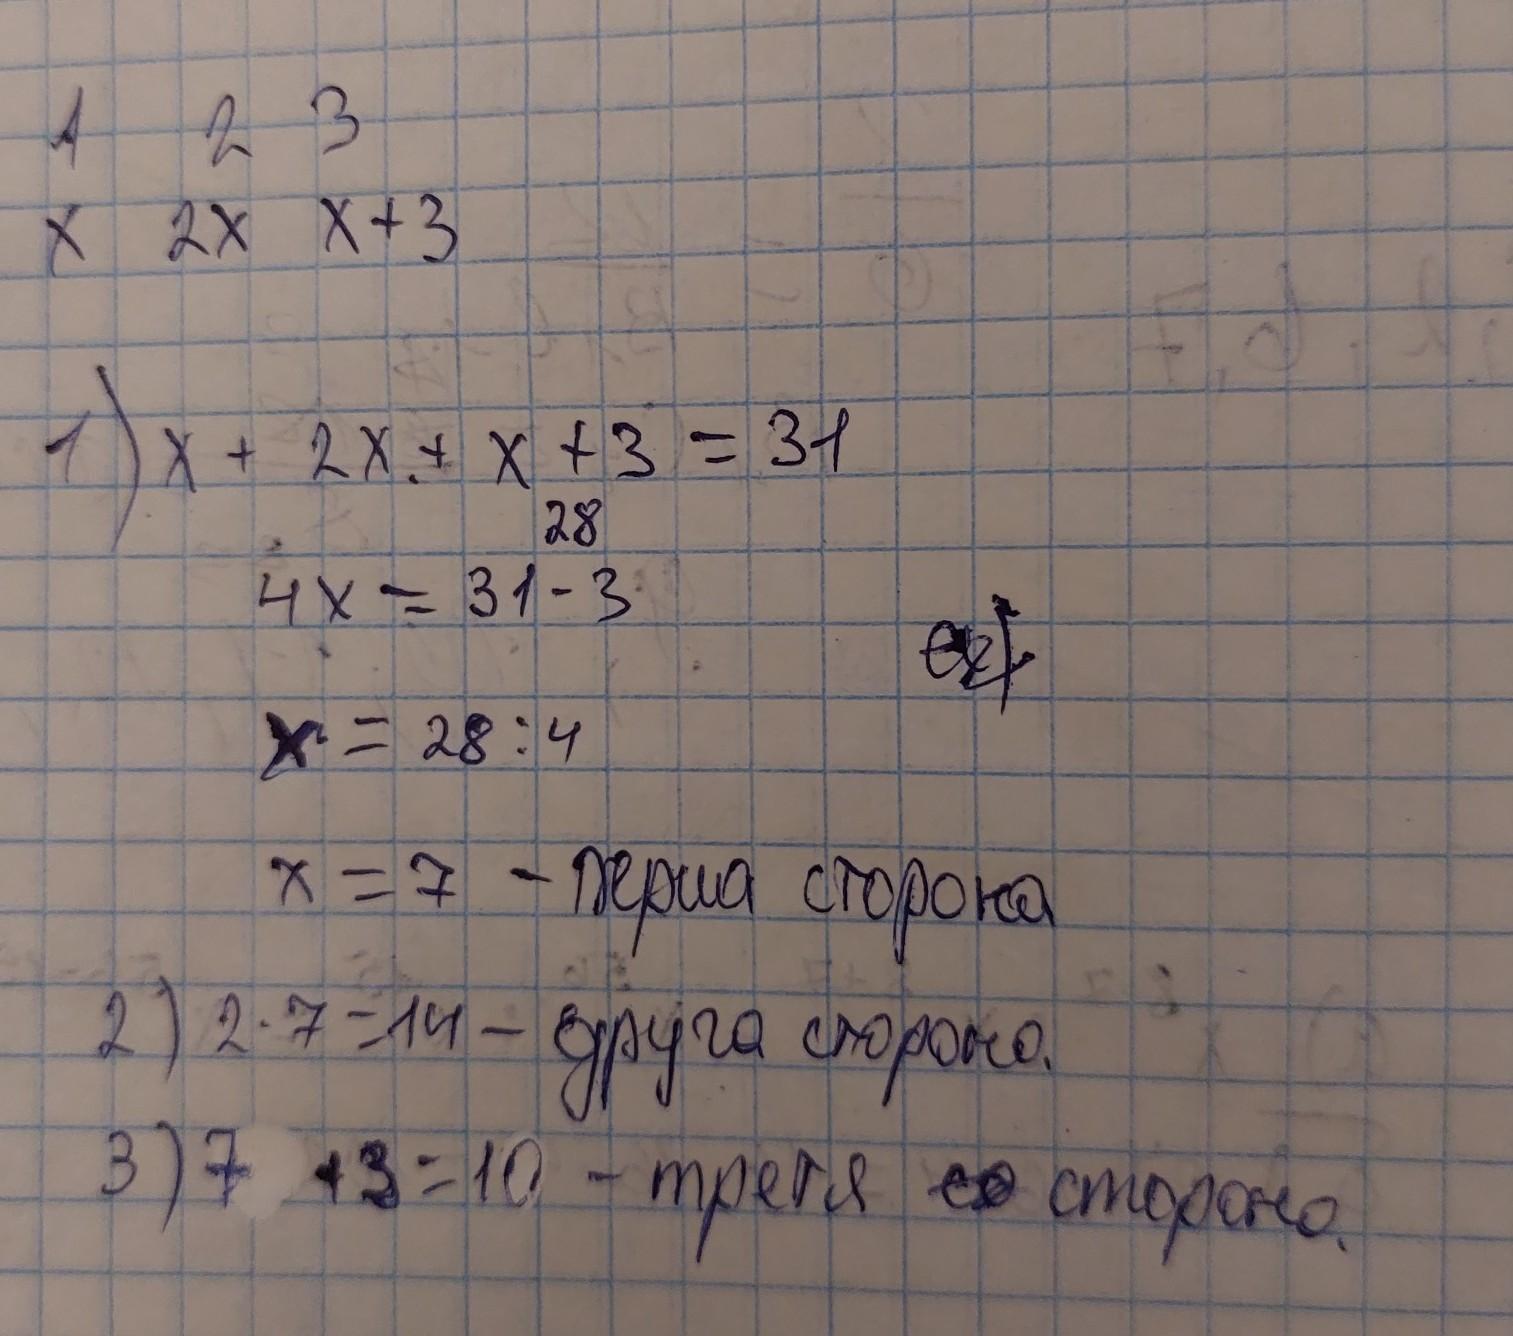 1 2 3
x 2x x+3
1) x + 2x + x + 3 = 31
28
4x = 31 - 3
x = 28 : 4
x = 7 - перша сторона
2) 2 · 7 = 14 - друга сторона.
3) 7 + 3 = 10 - третя сторона.